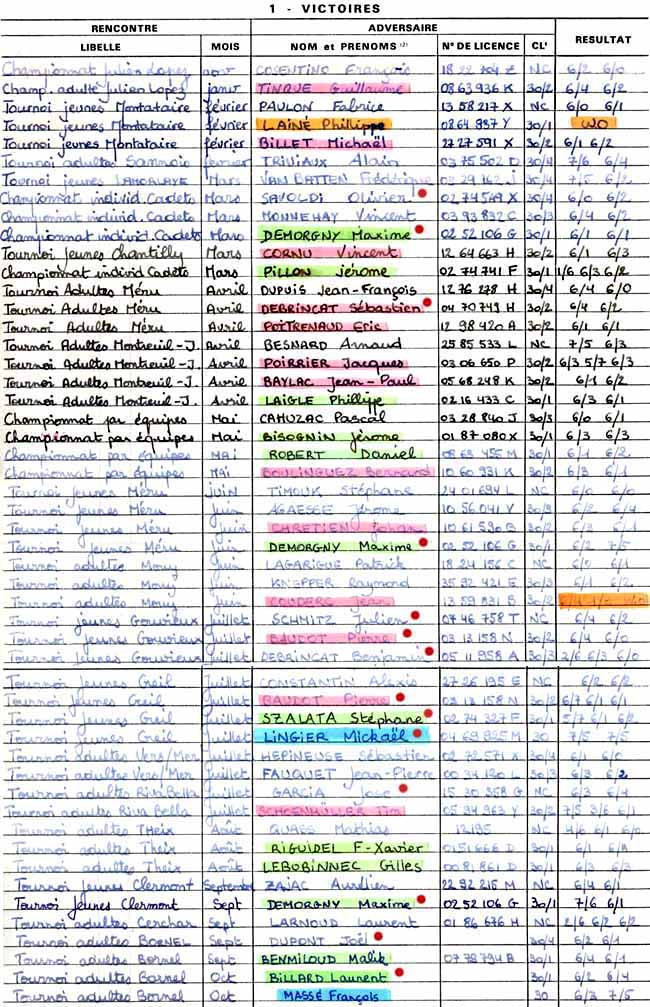 1 - VICTOIRES
RENCONTRE ADVERSAIRE RESULTAT
LIBELLE MOIS NOM et PRENOMS (2) N° DE LICENCE CL'
Championnat Julien Lopez nov COSENTINO François 18 22 704 Z NC 6/2 6/0
Champ. adulte Julien Lopez janv TINQUE Guillaume 08 63 936 K 30/2 6/4 6/2
Tournoi jeunes Montataire février PAULON Fabrice 13 58 217 X NC 6/0 6/1
Tournoi jeunes Montataire février LAINÉ Phillippe 08 64 937 Y 30/1 WO
Tournoi jeunes Montataire février BILLET Michaël 27 27 591 X 30/2 6/1 6/2
Tournoi adultes Sannois février TRIVIAUX Alain 03 75 502 D 30/4 7/6 6/4
Tournoi jeunes LAMORLAYE Mars VAN BATTEN Frédérique 30/4 7/5 6/2
Championnat individ. Cadets Mars SAVOLDI Olivier 02 74 549 X 30/4 6/0 6/2
Championnat individ. Cadets Mars MONNEHAY Vincent 03 93 832 C 30/3 6/4 6/2
Championnat individ. Cadets Mars DEMORGNY Maxime 02 52 106 G 30/1 6/1 6/1
Tournoi jeunes Chantilly Mars CORNU Vincent 12 64 663 H 30/2 6/1 6/3
Championnat individ Cadets Mars PILLON Jérome 02 74 741 F 30/1 1/6 6/3 6/2
Tournoi Adultes Méru Avril DUPUIS Jean-François 12 76 278 H 30/4 6/4 6/0
Tournoi Adultes Méru Avril DEBRINCAT Sébastien 04 70 749 H 30/2 6/4 6/2
Tournoi Adultes Méru Avril POITRENAUD Eric 12 98 420 A 30/2 6/1 6/1
Tournoi Adultes Montreuil-J. Avril BESNARD Arnaud 25 85 533 L NC 7/5 6/3
Tournoi Adultes Montreuil-J. Avril POIRRIER Jacques 03 06 650 P 30/2 6/3 5/7 6/3
Tournoi Adultes Montreuil-J. Avril BAYLAC Jean-Paul 05 68 248 K 30/2 6/1 6/2
Tournoi Adultes Montreuil-J. Avril LAIGLE Phillipe 02 16 433 C 30/1 6/3 6/1
Championnat par équipes Mai CAHUZAC Pascal 03 28 840 J 30/3 6/0 6/1
Championnat par équipes Mai BISOGNIN Jérome 01 87 080 X 30/1 6/3 6/3
Championnat par équipes Mai ROBERT Daniel 08 63 455 M 30/1 6/1 6/2
Championnat par équipes Mai BOULINGUEZ Bernard 10 60 931 K 30/2 6/3 6/1
Tournoi jeunes Méru Juin TIMOUK Stéphane 24 01 694 L NC 6/0 6/0
Tournoi jeunes Méru Juin AGAESSE Jérome 10 56 041 Y 30/3 6/2 6/4
Tournoi jeunes Méru Juin CHRETIEN Johan 10 61 530 B 30/2 6/3 6/1
Tournoi jeunes Méru Juin DEMORGNY Maxime 02 52 106 G 30/1 6/2 7/5
Tournoi adultes Mouy Juin LAGARIGUE Patrick 18 24 156 C NC 6/0 6/1
Tournoi adultes Mouy Juin KNEPPER Raymond 35 92 421 E 30/3 6/1 6/2
Tournoi adultes Mouy Juin COUDERC Jean 13 59 831 B 30/2 WO
Tournoi jeunes Gouvieux Juillet SCHMITZ Julien 07 46 758 T NC 6/4 6/2
Tournoi jeunes Gouvieux Juillet BAUDOT Pierre 03 13 158 N 30/2 6/4 6/0
Tournoi jeunes Gouvieux Juillet DEBRINCAT Benjamin 05 11 958 A 30/3 3/6 6/3 6/0
Tournoi jeunes Creil Juillet CONSTANTIN Alexis 27 26 195 E NC 6/2 6/2
Tournoi jeunes Creil Juillet BAUDOT Pierre 03 13 158 N 30/2 6/7 6/1 6/1
Tournoi jeunes Creil Juillet SZALATA Stéphane 02 74 327 F 30/1 5/7 6/1 6/2
Tournoi jeunes Creil Juillet LINGIER Mickaël 04 69 925 M 30 7/5 7/5
Tournoi adultes Vers/Mer Juillet HEPINEUSE Sébastien 02 72 571 X 30/4 6/1 6/0
Tournoi adultes Vers/Mer Juillet FAUQUET Jean-Pierre 00 34 120 L 30/3 6/3 6/2
Tournoi adultes Riva Bella Juillet GARCIA José 15 30 358 G NC 6/3 6/4
Tournoi adultes Riva Bella Juillet SCHOENMÜLLER Tim 05 94 963 Y 30/2 7/5 3/6 6/1
Tournoi adultes Theix Août Mathias 12195 NC 4/6 6/1 6/0
Tournoi adultes Theix Août RIGUIDEL F-Xavier 30/1 6/1
Tournoi adultes Theix Août LEBOBINNEC Gilles 00 81 861 D 30/1 6/3 6/3
Tournoi jeunes Clermont Septembre ZAJAC Aurélien 22 92 215 M NC 6/4 6/1
Tournoi jeunes Clermont Sept DEMORGNY Maxime 02 52 106 G 30/1 7/6 6/1
Tournoi adultes Cerchar Sept LARNOUD Laurent 01 86 676 H NC 2/6 6/2 6/2
Tournoi adultes BORNEL Sept DUPONT Joël 30/4 6/2 6/1
Tournoi adultes Bornel Sept BENMILOUD Malik 07 78 794 B 30/1 6/4 6/1
Tournoi adultes Bornel Oct BILLARD Laurent 30/1 6/2 6/4
Tournoi adultes Bornel Oct MASSÉ François 30 6/3 7/5